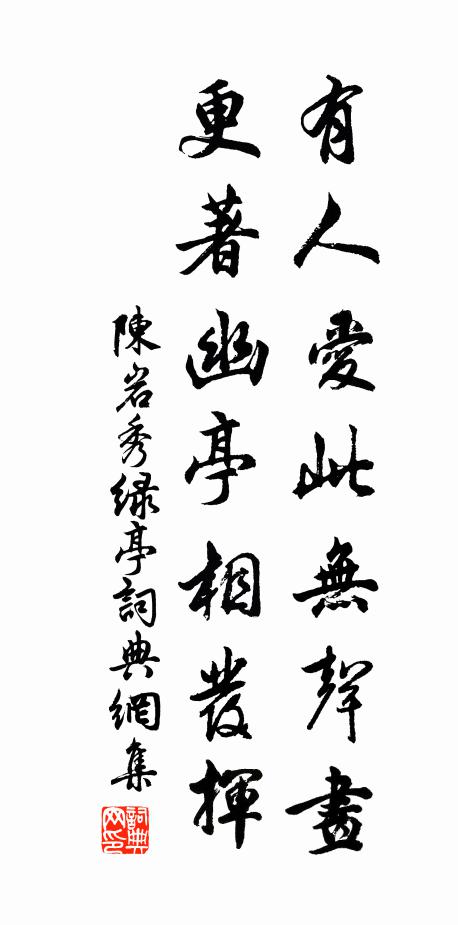 有人愛此無聲畫
更著幽亭相發揮
陳岩秀绿亭詞典網集
詞典网印